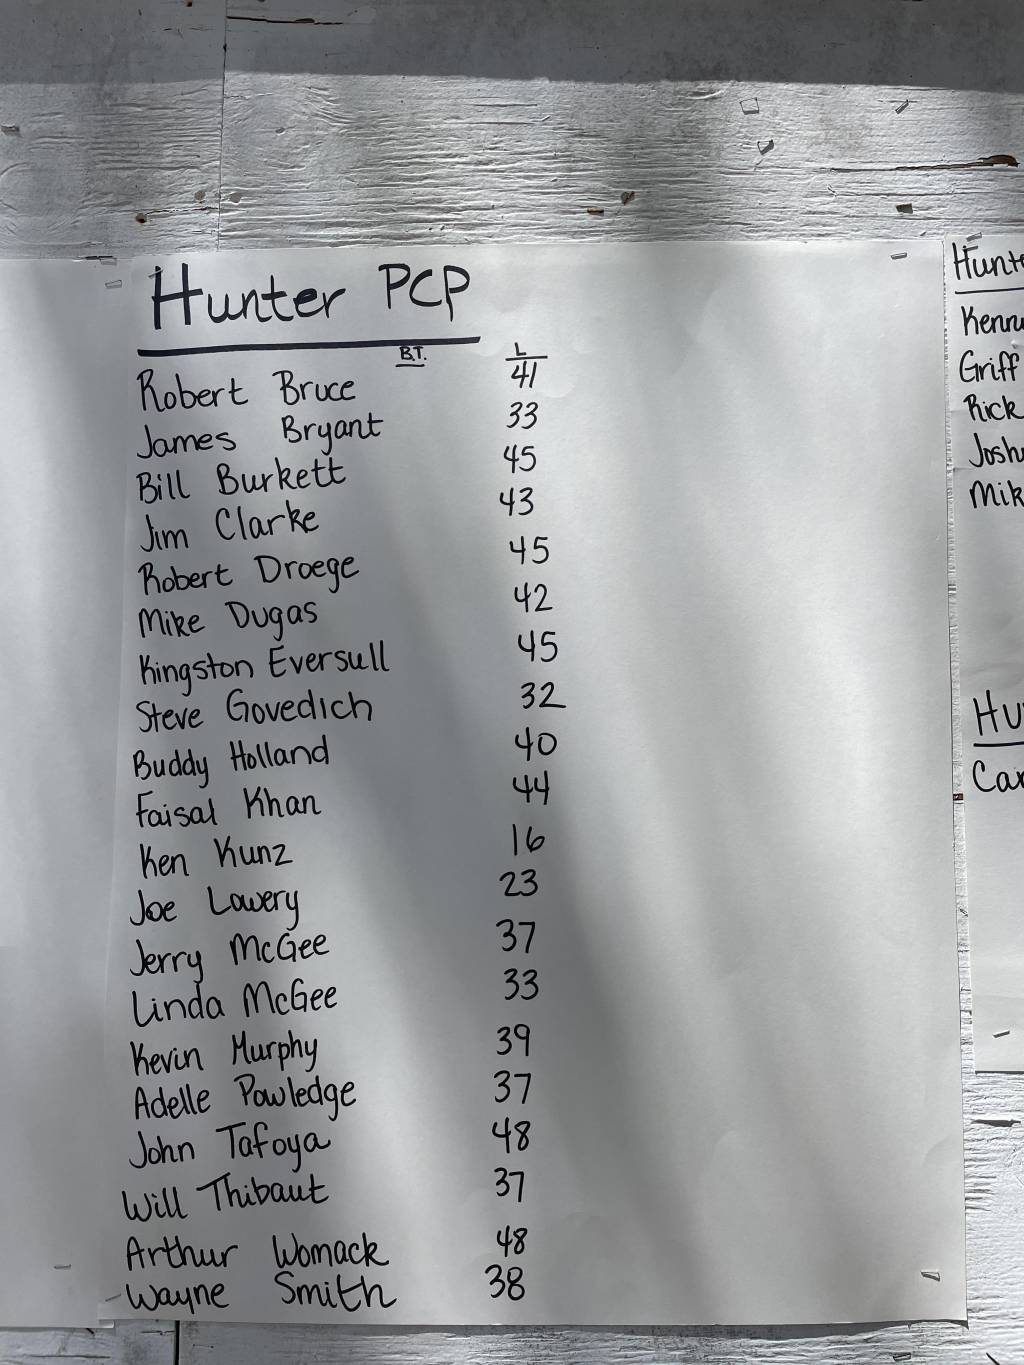 Hunter PCP
B.T. L
Robert Bruce 41
James Bryant 33
Bill Burkett 45
Jim Clarke 43
Robert Droege 45
Mike Dugas 42
Kingston Eversull 45
Steve Govedich 32
Buddy Holland 40
Faisal Khan 44
Ken Kunz 16
Joe Lowery 23
Jerry McGee 37
Linda McGee 33
Kevin Murphy 39
Adelle Powledge 37
John Tafoya 48
Will Thibaut 37
Arthur Womack 48
Wayne Smith 38
Griff
Rick